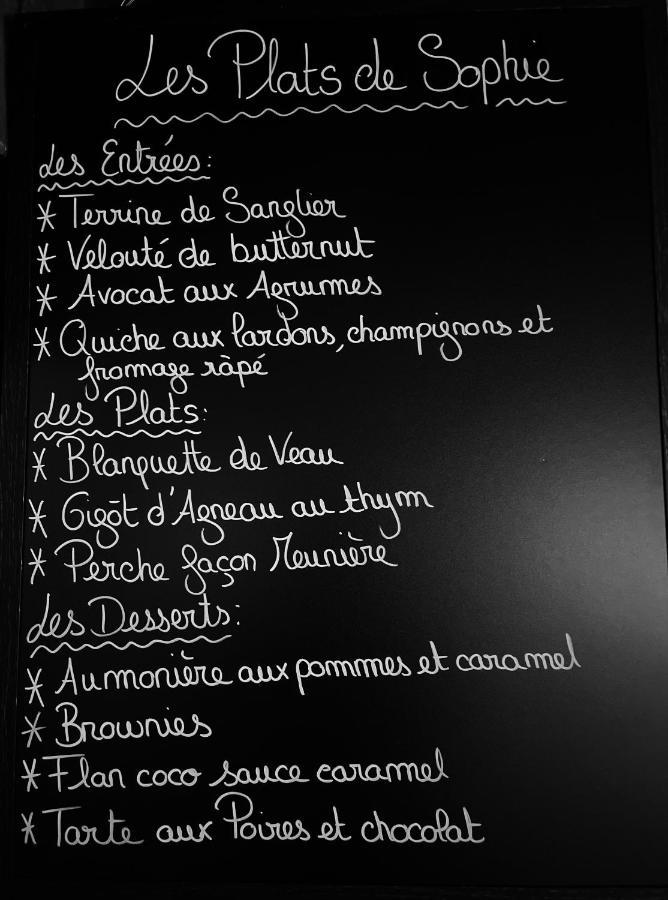 Les Plats de Sophie
Les Entrées:
* Terrine de Sanglier
* Velouté de butternut
* Avocat aux Agrumes
* Quiche aux lardons, champignons et
fromage ràpé
Les Plats:
* Blanquette de Veau
* Gigôt d'Agneau au thym
* Perche façon Meunière
Les Desserts:
* Aumonière aux pommes et caramel
* Brownies
* Flan coco sauce caramel
* Tarte aux Poires et chocolat